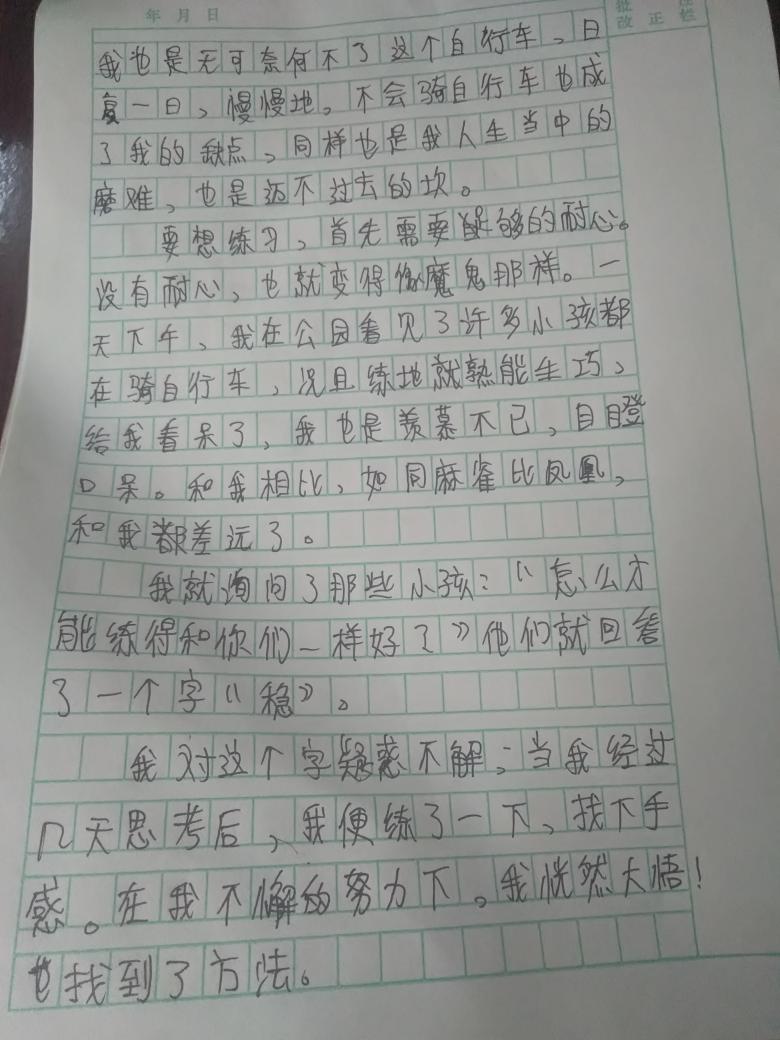 年 月 日
批改 正 栏
我也是无可奈何不了这个自行车，日
复一日，慢慢地，不会骑自行车也成
了我的缺点，同样也是我人生当中的
磨难，也是迈不过去的坎。
要想练习，首先需要足够的耐心。
没有耐心，也就变得像魔鬼那样。一
天下午，我在公园看见了许多小孩都
在骑自行车，况且练地就熟能生巧，
给我看呆了，我也是羡慕不已，目瞪
口呆。和我相比，如同麻雀比凤凰，
和我都差远了。
我就询问了那些小孩：“怎么才
能练得和你们一样好？”他们就回答
了一个字“稳”。
我对这个字疑惑不解；当我经过
几天思考后，我便练了一下，找下手
感。在我不懈的努力下，我恍然大悟！
也找到了方法。